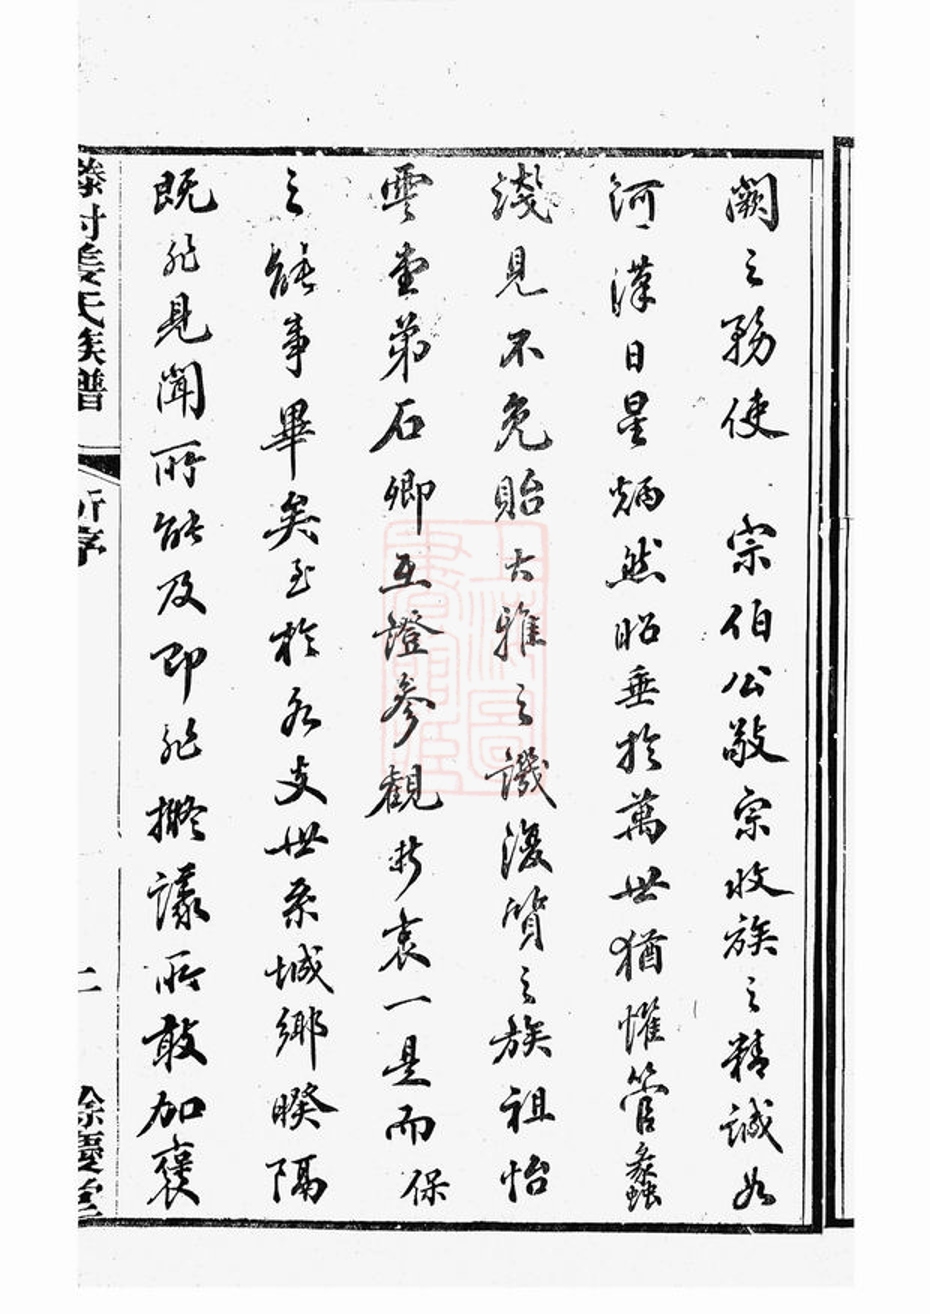 闕之務使　宗伯公敬宗收族之精誠如
河漢日星炳然昭垂於萬世猶懼管蠡
淺見不免貽大雅之譏復質之族祖怡
雲堂弟石卿互證參觀折衷一是而保
之能事畢矣至於各支世系城鄉暌隔
既非見聞所能及即非擬議所敢加褒
姜氏族譜
新序
二
餘慶堂